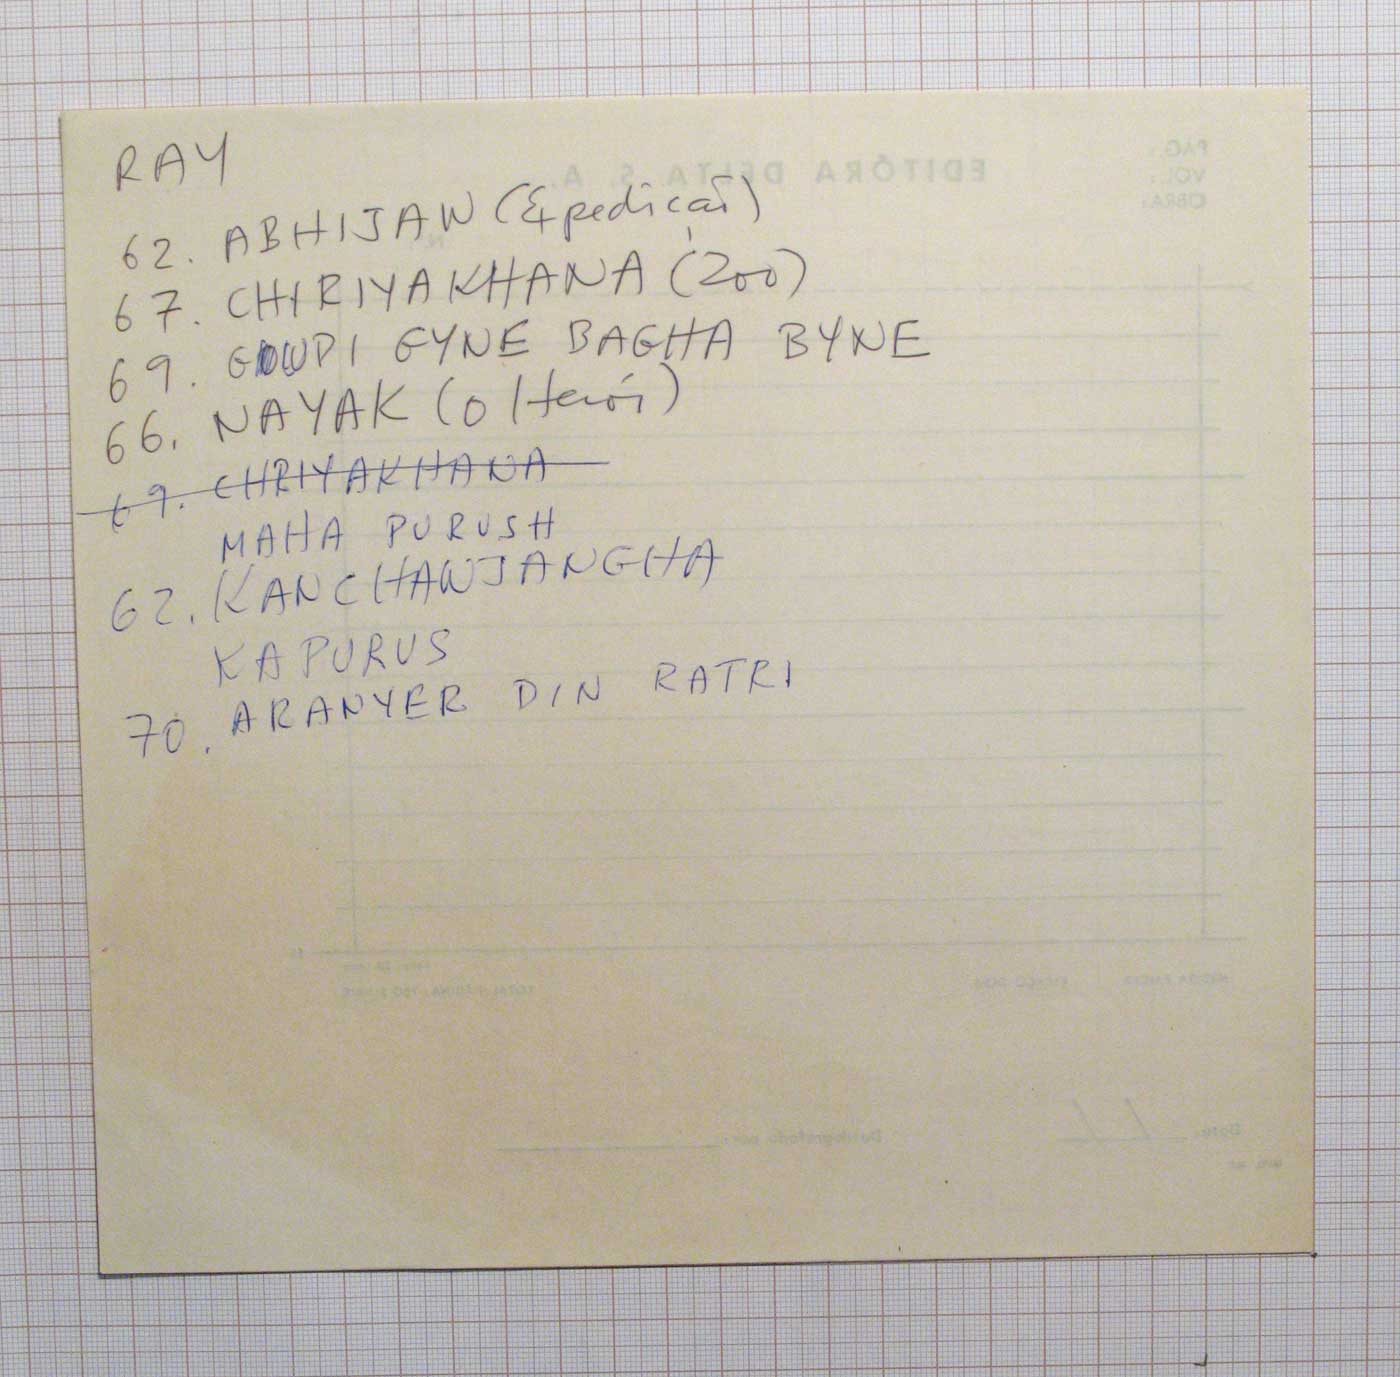 RAY
62. ABHIJAN (Expedição)
67. CHIRIYAKHANA (Zoo)
69. GOUPI GYNE BAGHA BYNE
66. NAYAK (O Herói)
69. CHRIYAKHANA
MAHA PURUSH
62. KANCHANJANGHA
KAPURUS
70. ARANYER DIN RATRI
PÁG.:
VOL.:
OBRA:
EDITÔRA DELTA S. A.
Datilografado por:
Data: